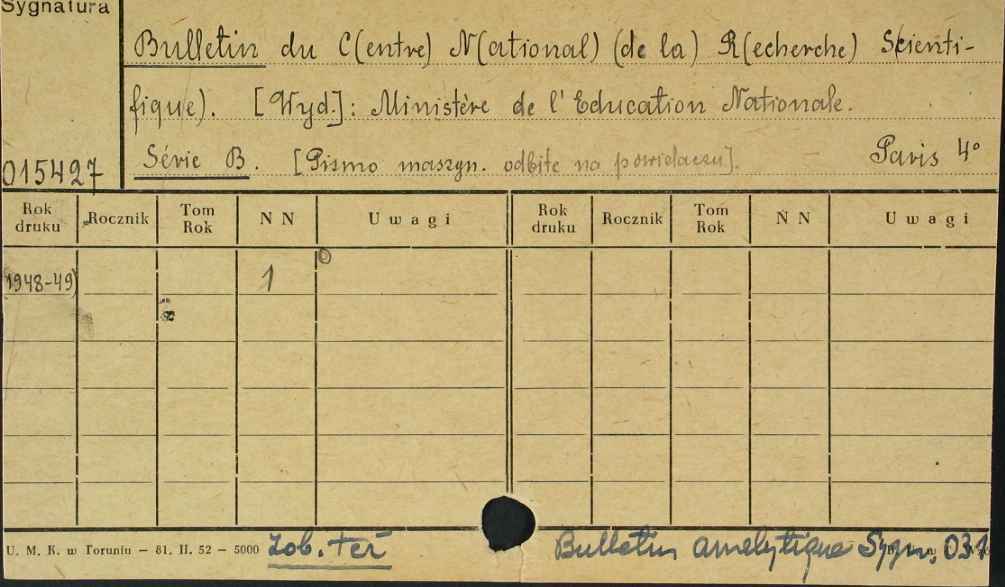 Sygnatura
Bulletin du C(entre) N(ational) (de la) R(echerche) Scienti-
fique). [Wyd.]: Ministère de l'Education Nationale.
Série B. [Pismo maszyn. odbite na powielaczu]. Paris 4°
015427
Rok druku Rocznik Tom Rok N N Uwagi Rok druku Rocznik Tom Rok N N Uwagi
1948-49) 1
U. M. K. w Toruniu — 81. II. 52 — 5000 Zob. też Bulletin analytique Sygn. 031